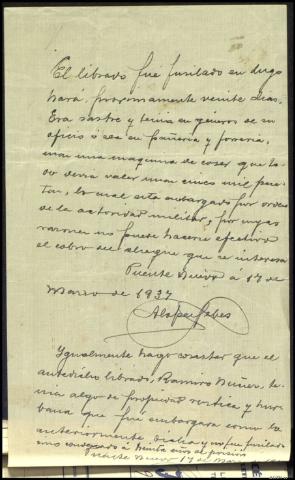 El librado fué fusilado en Lugo
hará, proximamente veinte dias.
Era sastre y tenia en géneros de su
oficio ó sea en pañeria y forreria,
mas una maquina de coser que to-
do devia valer unas cinco mil pese-
tas, lo cual esta embargado por orden
de la autoridad militar, por cuyas
razones no puede hacerse efectivo
el cobro del cheque que se interesa
Puente Nuevo á 17 de
Marzo de 1937
Igualmente hago constar que el
antedicho librado, Ramiro Nuñez, te-
nia algo de propiedad rustica y hur-
bana que fué embargara como lo
anteriormente dicho y no fue fusilado
sino condenado á treinta años de prision
Puente Nuevo 17 de Marzo